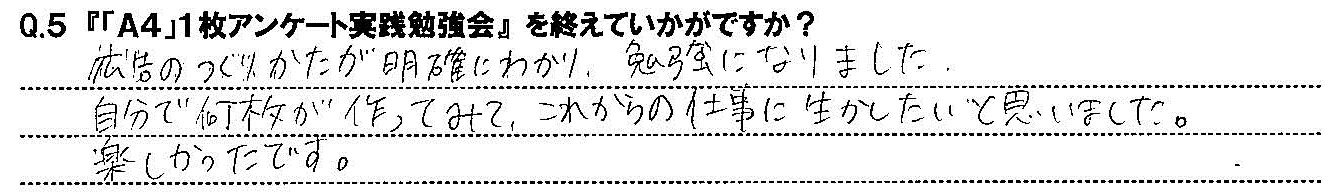 Q.5 『「A4」1枚アンケート実践勉強会』を終えていかがですか？
広告のつくりかたが明確にわかり、勉強になりました.
自分で何枚が作ってみて、これからの仕事に生かしたいと思いました。
楽しかったです。